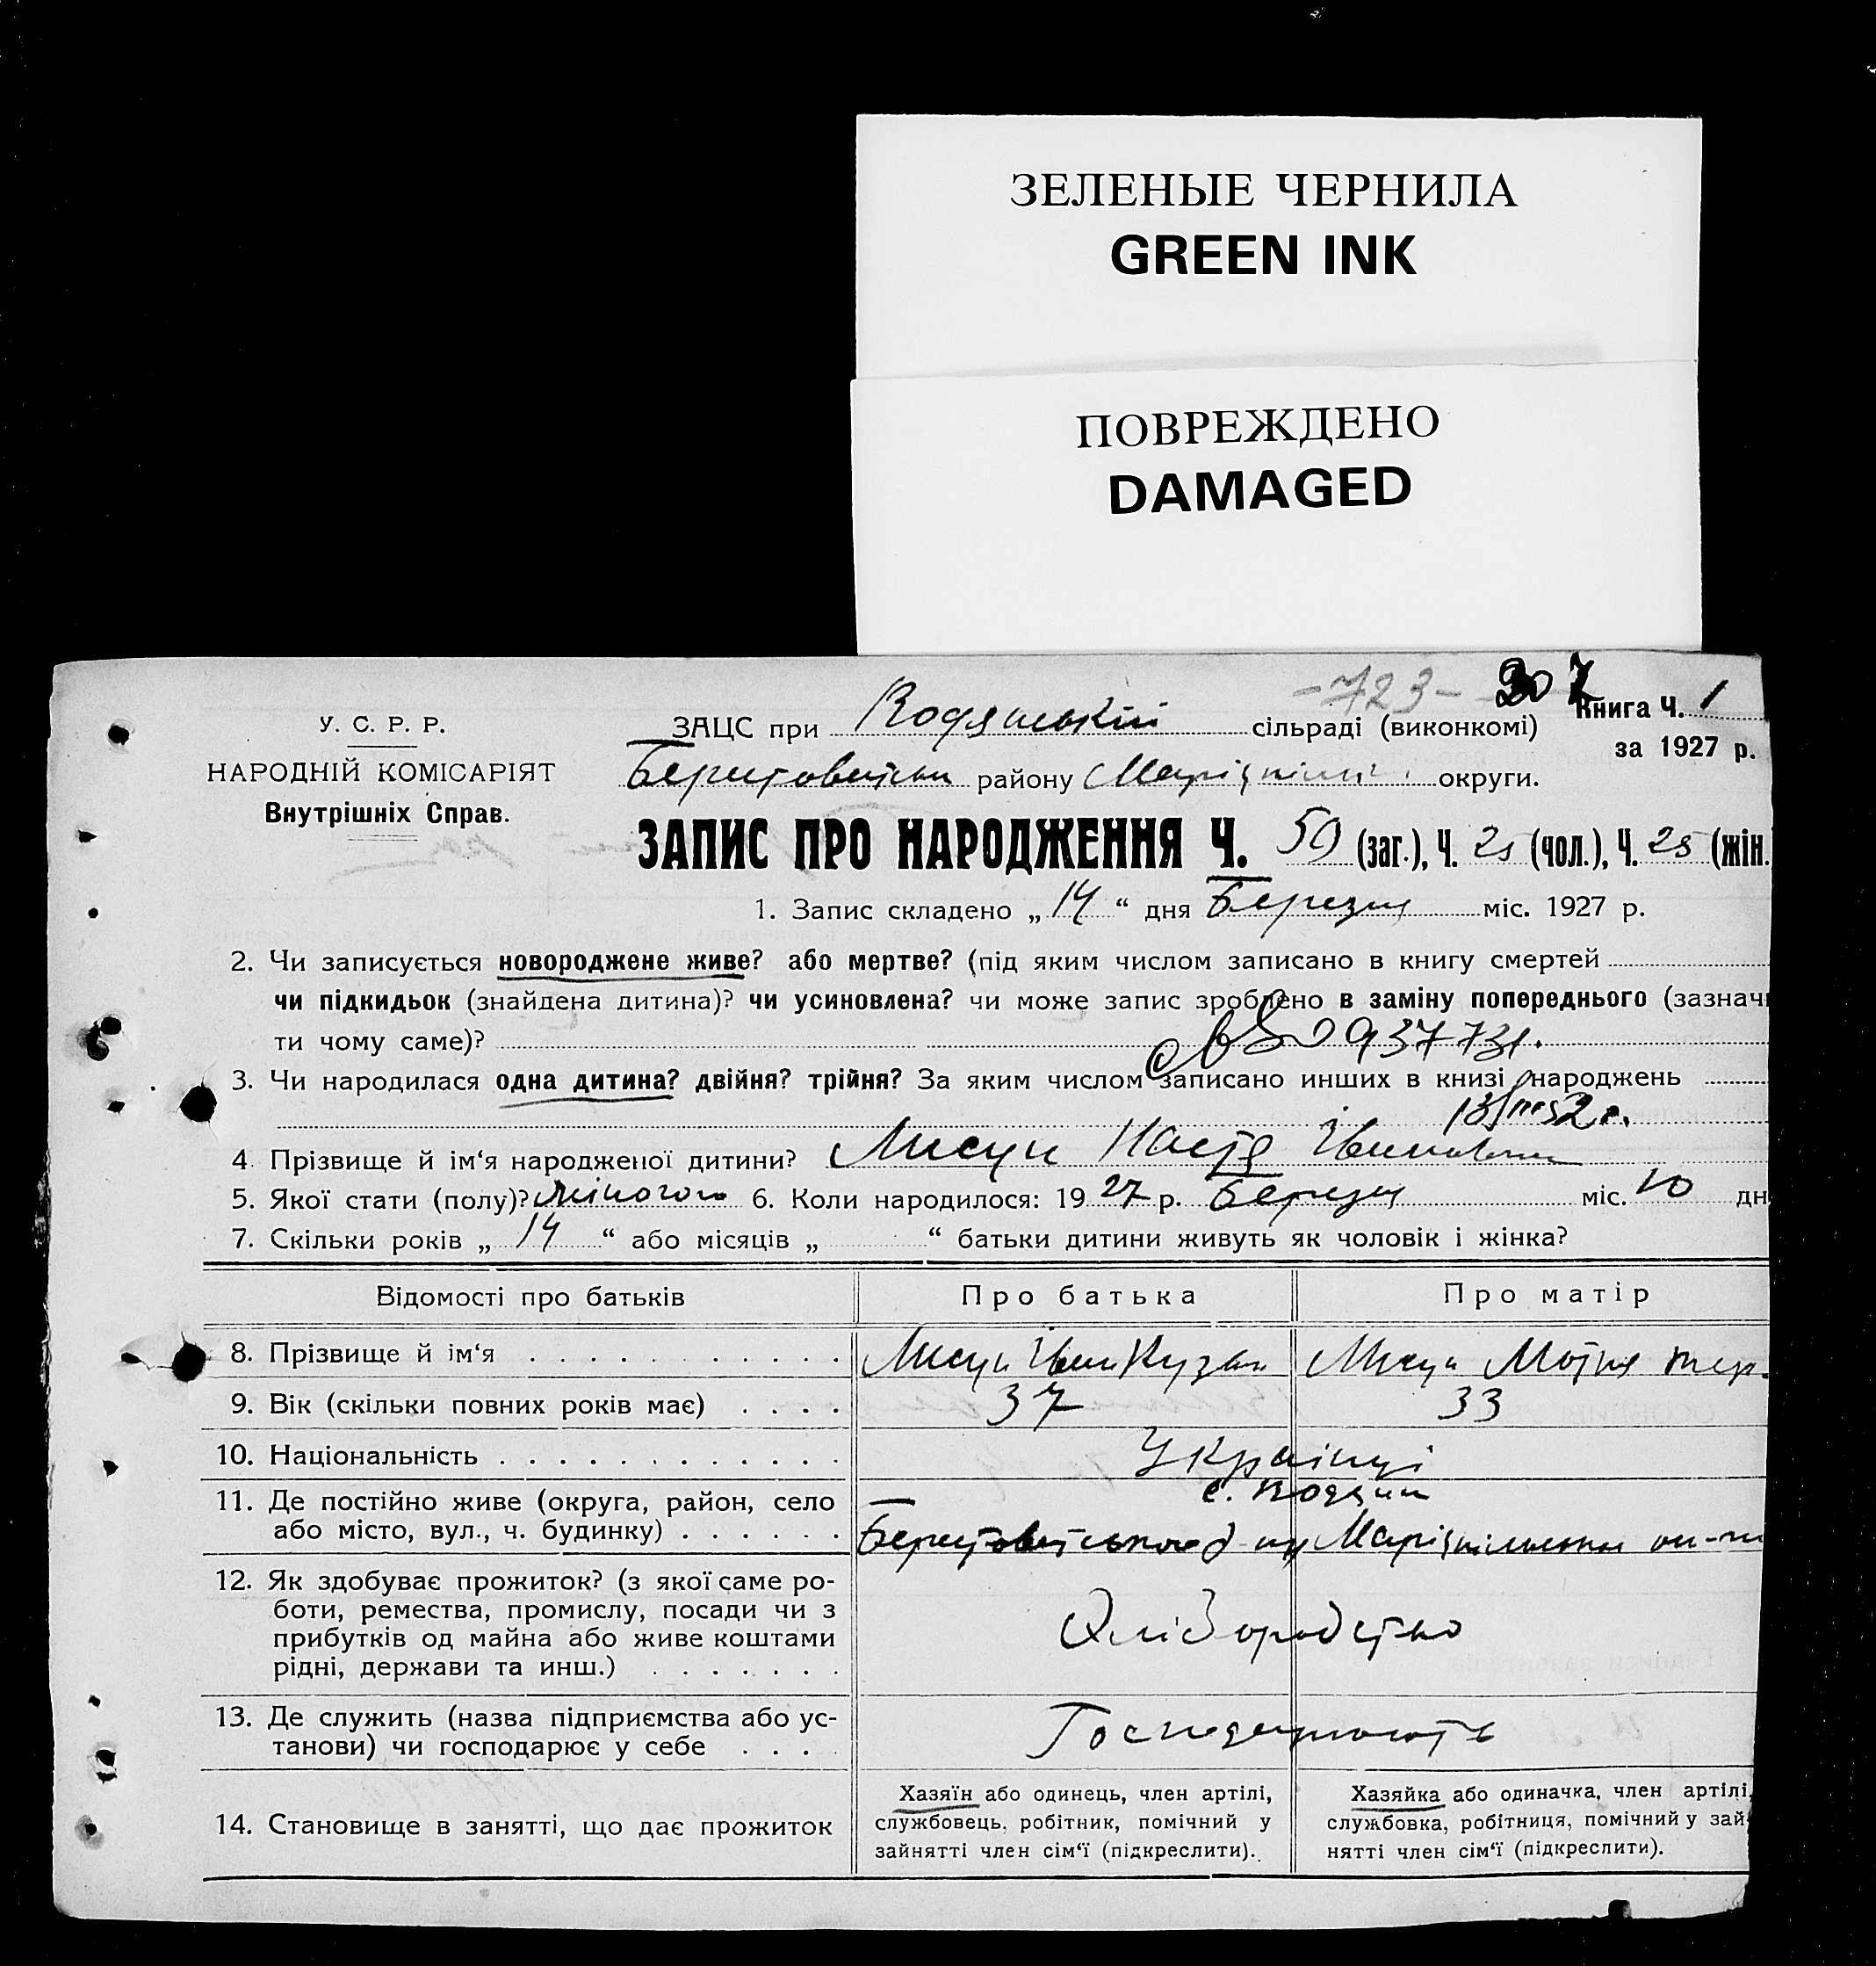 ЗЕЛЕНЫЕ ЧЕРНИЛА
GREEN INK
ПОВРЕЖДЕНО
DAMAGED
-723- 307
У. С. Р. Р.
НАРОДНІЙ КОМІСАРІЯТ
Внутрішніх Справ.
ЗАЦС при Водянській сільраді (виконкомі)
Книга Ч. 1
за 1927 р.
району округи.
ЗАПИС ПРО НАРОДЖЕННЯ Ч. 50 (заг.), Ч. 25 (чол.), Ч. 25 (жін.
1. Запис складено „ 14 “ дня Березня міс. 1927 р.
2. Чи записується новороджене живе? або мертве? (під яким числом записано в книгу смертей
чи підкидьок (знайдена дитина)? чи усиновлена? чи може запис зроблено в заміну попереднього (зазначи
ти чому саме)? 0937731.
3. Чи народилася одна дитина? двійня? трійня? За яким числом записано инших в книзі народжень
4. Прізвище й ім‘я народженої дитини? Лисун Настя Івановна
5. Якої стати (полу)? жіночого 6. Коли народилося: 19 27 р. Березня міс. 10 дн
7. Скільки років „ 14 “ або місяців „ “ батьки дитини живуть як чоловік і жінка?
Відомості про батьків Про батька Про матір
8. Прізвище й ім‘я Лисун Іван Кузьм Лисун Мотня
9. Вік (скільки повних років має) 37 33
10. Національність Українці
11. Де постійно живе (округа, район, село
або місто, вул., ч. будинку)
с. Водяни
12. Як здобуває прожиток? (з якої саме ро-
боти, ремества, промислу, посади чи з
прибутків од майна або живе коштами
рідні, держави та инш.)
Хліборобство
13. Де служить (назва підприємства або ус-
танови) чи господарює у себе
Господарюють
14. Становище в занятті, що дає прожиток
Хазяїн або одинець, член артілі,
службовець, робітник, помічний у
зайнятті член сім‘ї (підкреслити).
Хазяйка або одиначка, член артілі,
службовка, робітниця, помічний у зай-
нятті член сім‘ї (підкреслити).